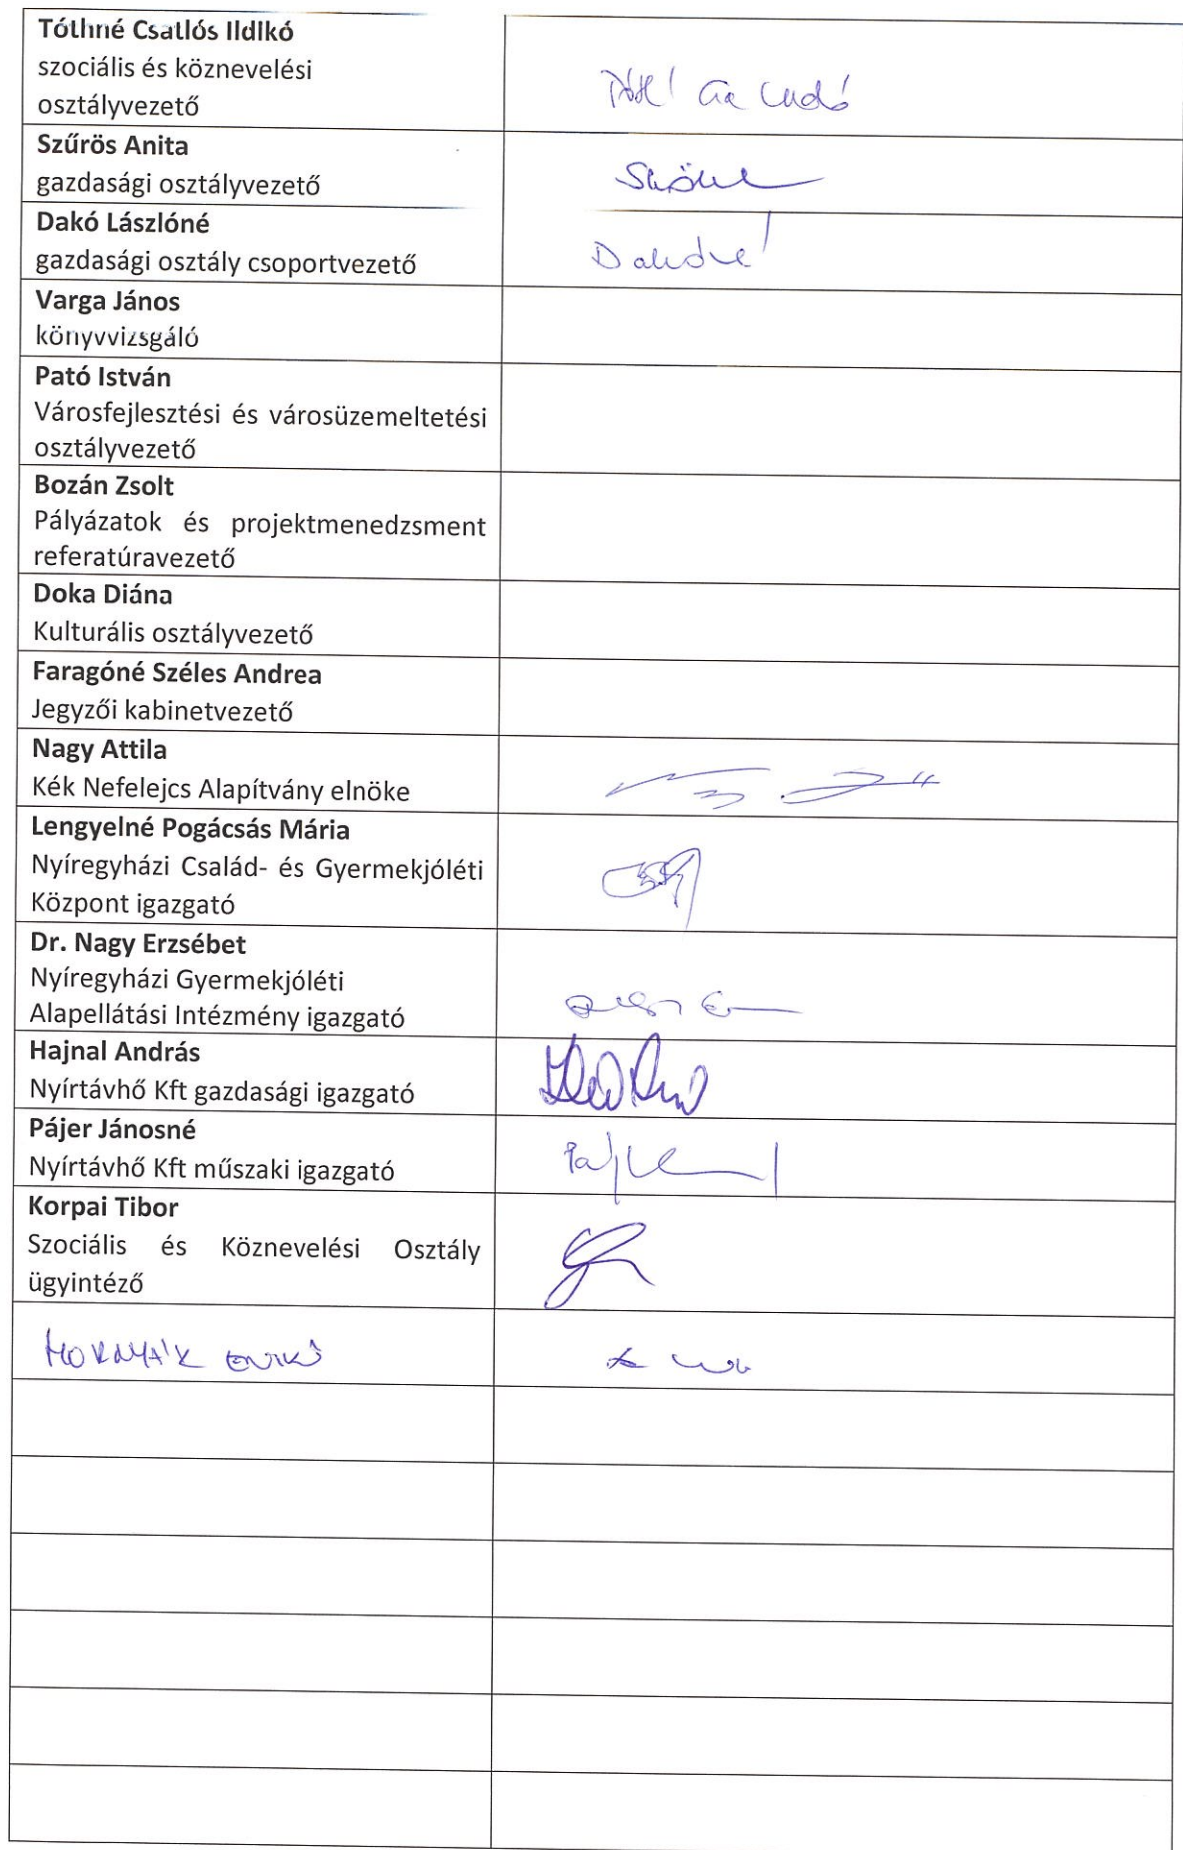 Tóthné Csatlós Ildikó
szociális és köznevelési
osztályvezető
Szűrös Anita
gazdasági osztályvezető
Dakó Lászlóné
gazdasági osztály csoportvezető
Dakóné
Varga János
könyvvizsgáló
Pató István
Városfejlesztési és városüzemeltetési
osztályvezető
Bozán Zsolt
Pályázatok és projektmenedzsment
referatúravezető
Doka Diána
Kulturális osztályvezető
Faragóné Széles Andrea
Jegyzői kabinetvezető
Nagy Attila
Kék Nefelejcs Alapítvány elnöke
Lengyelné Pogácsás Mária
Nyíregyházi Család- és Gyermekjóléti
Központ igazgató
Dr. Nagy Erzsébet
Nyíregyházi Gyermekjóléti
Alapellátási Intézmény igazgató
Hajnal András
Nyírtávhő Kft gazdasági igazgató
Pájer Jánosné
Nyírtávhő Kft műszaki igazgató
Korpai Tibor
Szociális és Köznevelési Osztály
ügyintéző